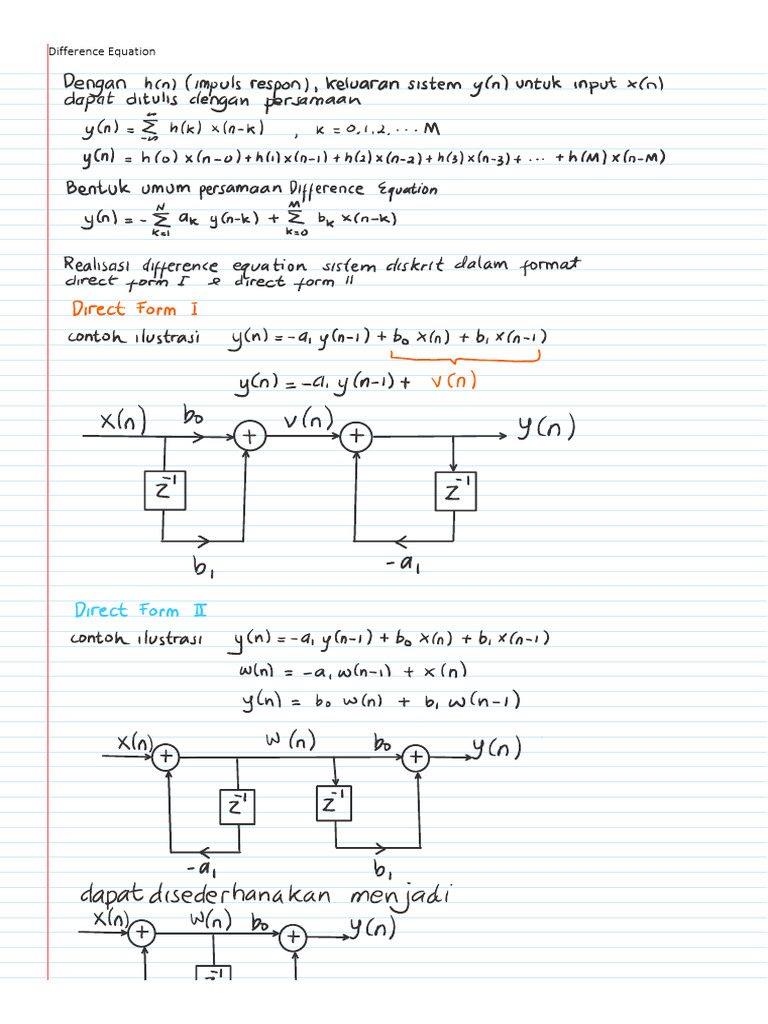 Difference Equation
Dengan h(n) (impuls respon), keluaran sistem y(n) untuk input x(n)
dapat ditulis dengan persamaan
y(n) = ∞ Σ -∞ h(k) x(n-k) , k = 0,1,2, ... M
y(n) = h(0) x(n-0) + h(1) x(n-1) + h(2) x(n-2) + h(3) x(n-3) + ... + h(M) x(n-M)
Bentuk umum persamaan Difference Equation
y(n) = - N Σ k=1 ak y(n-k) + M Σ k=0 bk x(n-k)
Realisasi difference equation sistem diskrit dalam format
direct form I & direct form II
Direct Form I
contoh ilustrasi y(n) = -a1 y(n-1) + b0 x(n) + b1 x(n-1)
y(n) = -a1 y(n-1) + v(n)
x(n) b0 + v(n) + y(n)
z-1 z-1
b1 -a1
Direct Form II
contoh ilustrasi y(n) = -a1 y(n-1) + b0 x(n) + b1 x(n-1)
w(n) = -a1 w(n-1) + x(n)
y(n) = b0 w(n) + b1 w(n-1)
x(n) + w(n) b0 + y(n)
z-1 z-1
-a1 b1
dapat disederhanakan menjadi
x(n) + w(n) b0 + y(n)
z-1